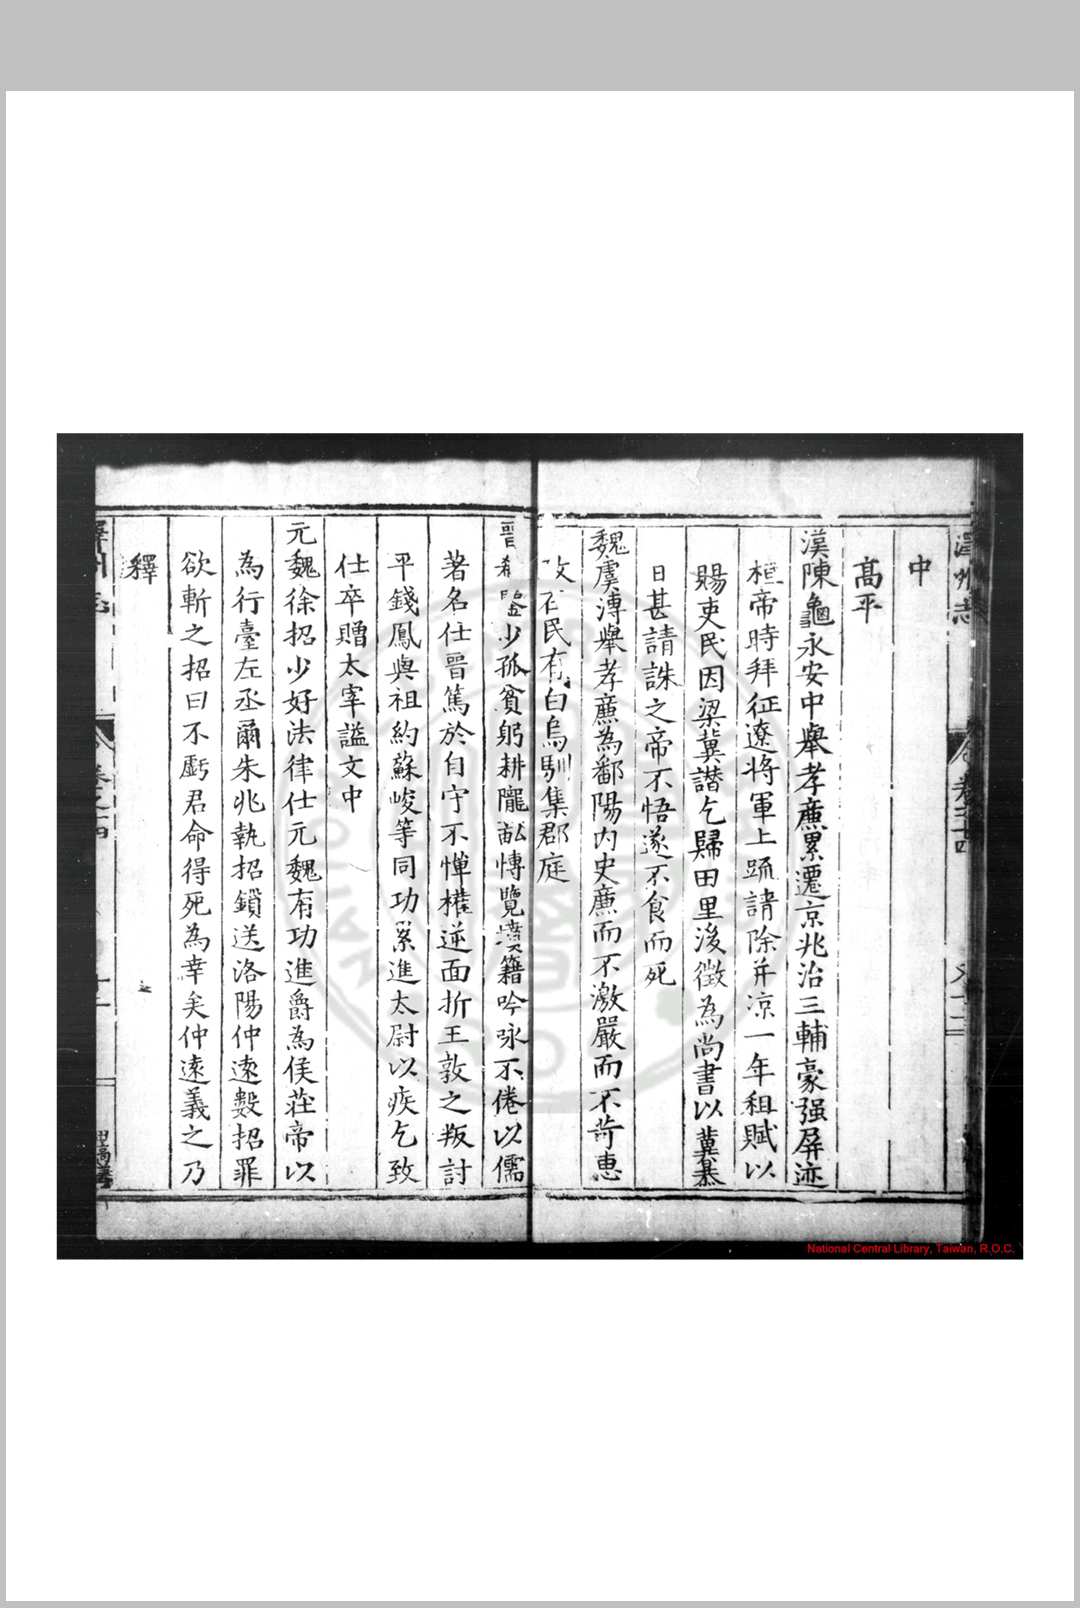 澤州志
卷之十四
中
高平
漢陳龜永安中舉孝廉累遷京兆治三輔豪强屏迹
桓帝時拜征遼將軍上䟽請除并凉一年租賦以
賜吏民因梁冀譛乞歸田里後徵為尚書以冀暴
日甚請誅之帝不悟遂不食而死
魏虞溥舉孝廉為鄱陽内史廉而不激嚴而不苛惠
政在民有白烏馴集郡庭
晋郗鑒少孤貧躬耕隴畝愽覽墳籍吟咏不倦以儒
著名仕晋篤於自守不憚權逆面折王敦之叛討
平錢鳳與祖約蘇峻等同功累進太尉以疾乞致
仕卒贈太宰謚文中
元魏徐招少好法律仕元魏有功進爵為侯莊帝以
為行臺左丞爾朱兆執招鎖送洛陽仲遠數招罪
欲斬之招曰不虧君命得死為幸矣仲遠義之乃
釋之
澤州志
卷之十四
National Central Library, Taiwan, R.O.C.